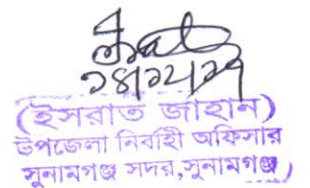 ১৪/১২/১৭
(ইসরাত জাহান)
উপজেলা নির্বাহী অফিসার
সুনামগঞ্জ সদর,সুনামগঞ্জ